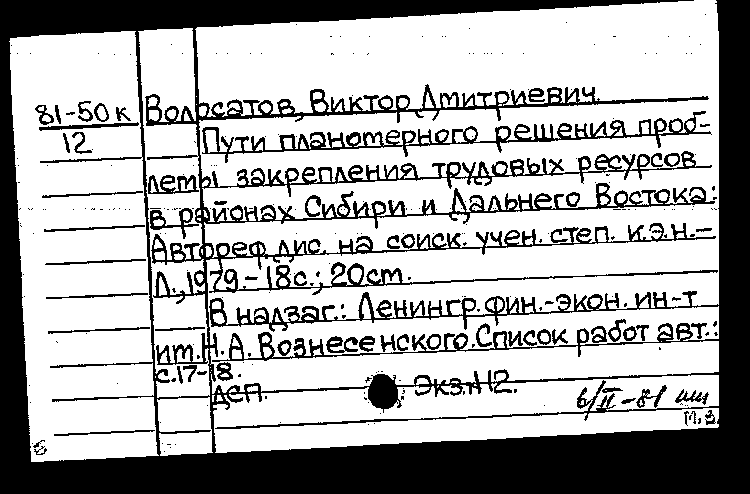 81-50к Волосатов, Виктор Дмитриевич.
12 Пути планомерного решения проб-
лемы закрепления трудовых ресурсов
в районах Сибири и Дальнего Востока:
Автореф. дис. на соиск. учен. степ. к.э.н.-
Л., 1979.- 18с.; 20см.
В надзаг.: Ленингр. фин.-экон. ин-т
им. Н.А. Вознесенского. Список работ авт.:
с.17-18.
ДСП. Экз.№12.
6/II-81
М.В.
Б